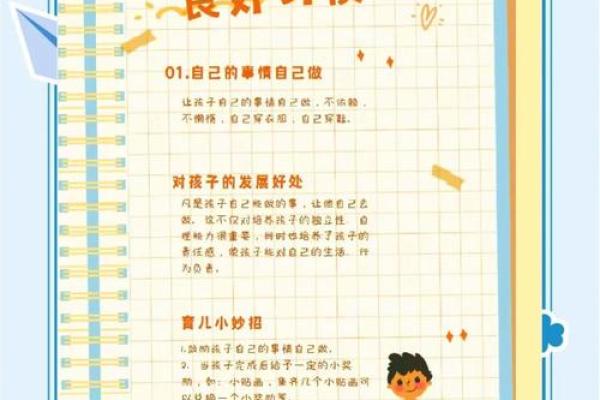 良好习惯
01.自己的事情自己做
让孩子自己的事情自己做，不依赖，
不懒惰，自己穿衣服，自己穿鞋。
对孩子的发展好处
凡是孩子自己能做的事，让他自己去
做。这不仅对培养孩子的独立性、自
理能力很重要，同时也培养了孩子的
责任感，使孩子能对自己的生活、行
为负责。
育儿小妙招
1.鼓励孩子自己的事情自己做。
2. 当孩子完成后给予一定的小奖
励，如：小贴画，集齐几个小贴画可
以兑换一个小奖励等